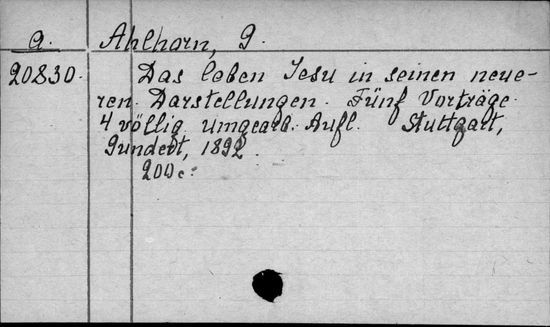 a. Ahlhorn, G.
20830. Das leben Jesu in seinen neue-
ren Darstellungen. Fünf Vorträge.
4 völlig umgearb. Aufl. Stuttgart,
Gundert, 1892.
200 c.